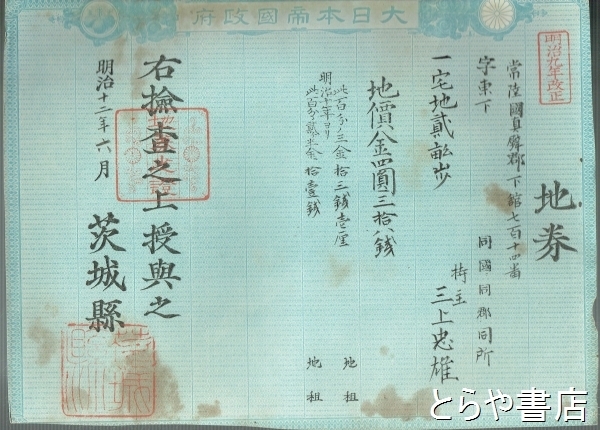 大日本帝國政府
明治九年改正
地券
常陸國真壁郡下館七百十四番
字東下
同國同郡同所
一宅地貳畝歩
持主 三上忠雄
地價金四圓三拾八錢
此百分ノ三金拾三錢壱厘 地租
明治十年ヨリ
此百分貳半金拾壹錢 地租
右撿査之上授與之
明治十二年六月
茨城縣
とらや書店